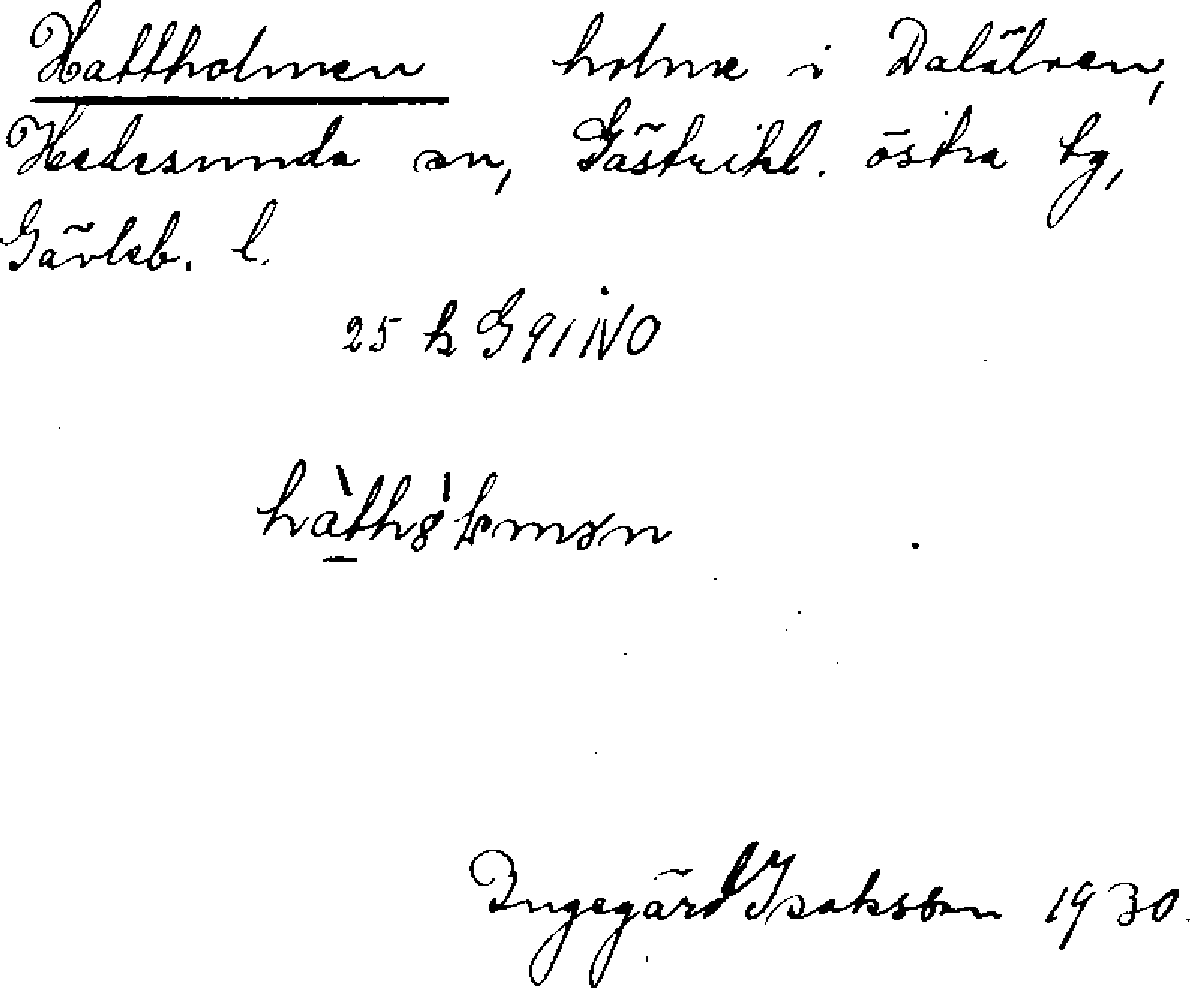 Hattholmen holme i Dalälven,
Hedesunda sn, Gästrikl. östra tg,
Gävleb. l.
25 k G 91 NO
Ingegärd Isaksson 1930.